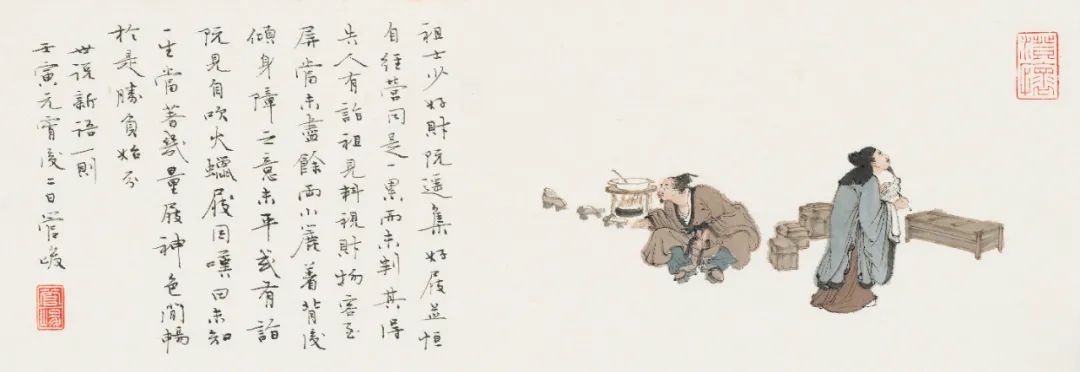 澄懷
祖士少好財阮遥集好屐並恒
自經營同是一累而未判其得
失人有詣祖見料視財物客至
屏當未盡餘兩小簏着背後
傾身障之意未平或有詣
阮見自吹火蠟屐因嘆曰未知
一生當著幾量屐神色閒暢
於是勝負始分
世说新语一則
壬寅元宵後二日管峻